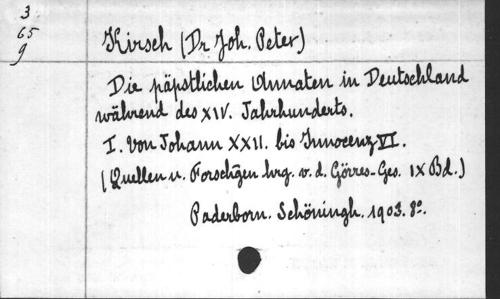 3
65
g
Kirsch (Dr Joh. Peter)
Die päpstlichen Annaten in Deutschland
während des XIV. Jahrhunderts.
I. Von Johann XXII. bis Innocenz VI.
(Quellen u. Forschgen hrg. v. d. Görres-Ges. IX Bd.)
Paderborn. Schöningh. 1903. 8º.